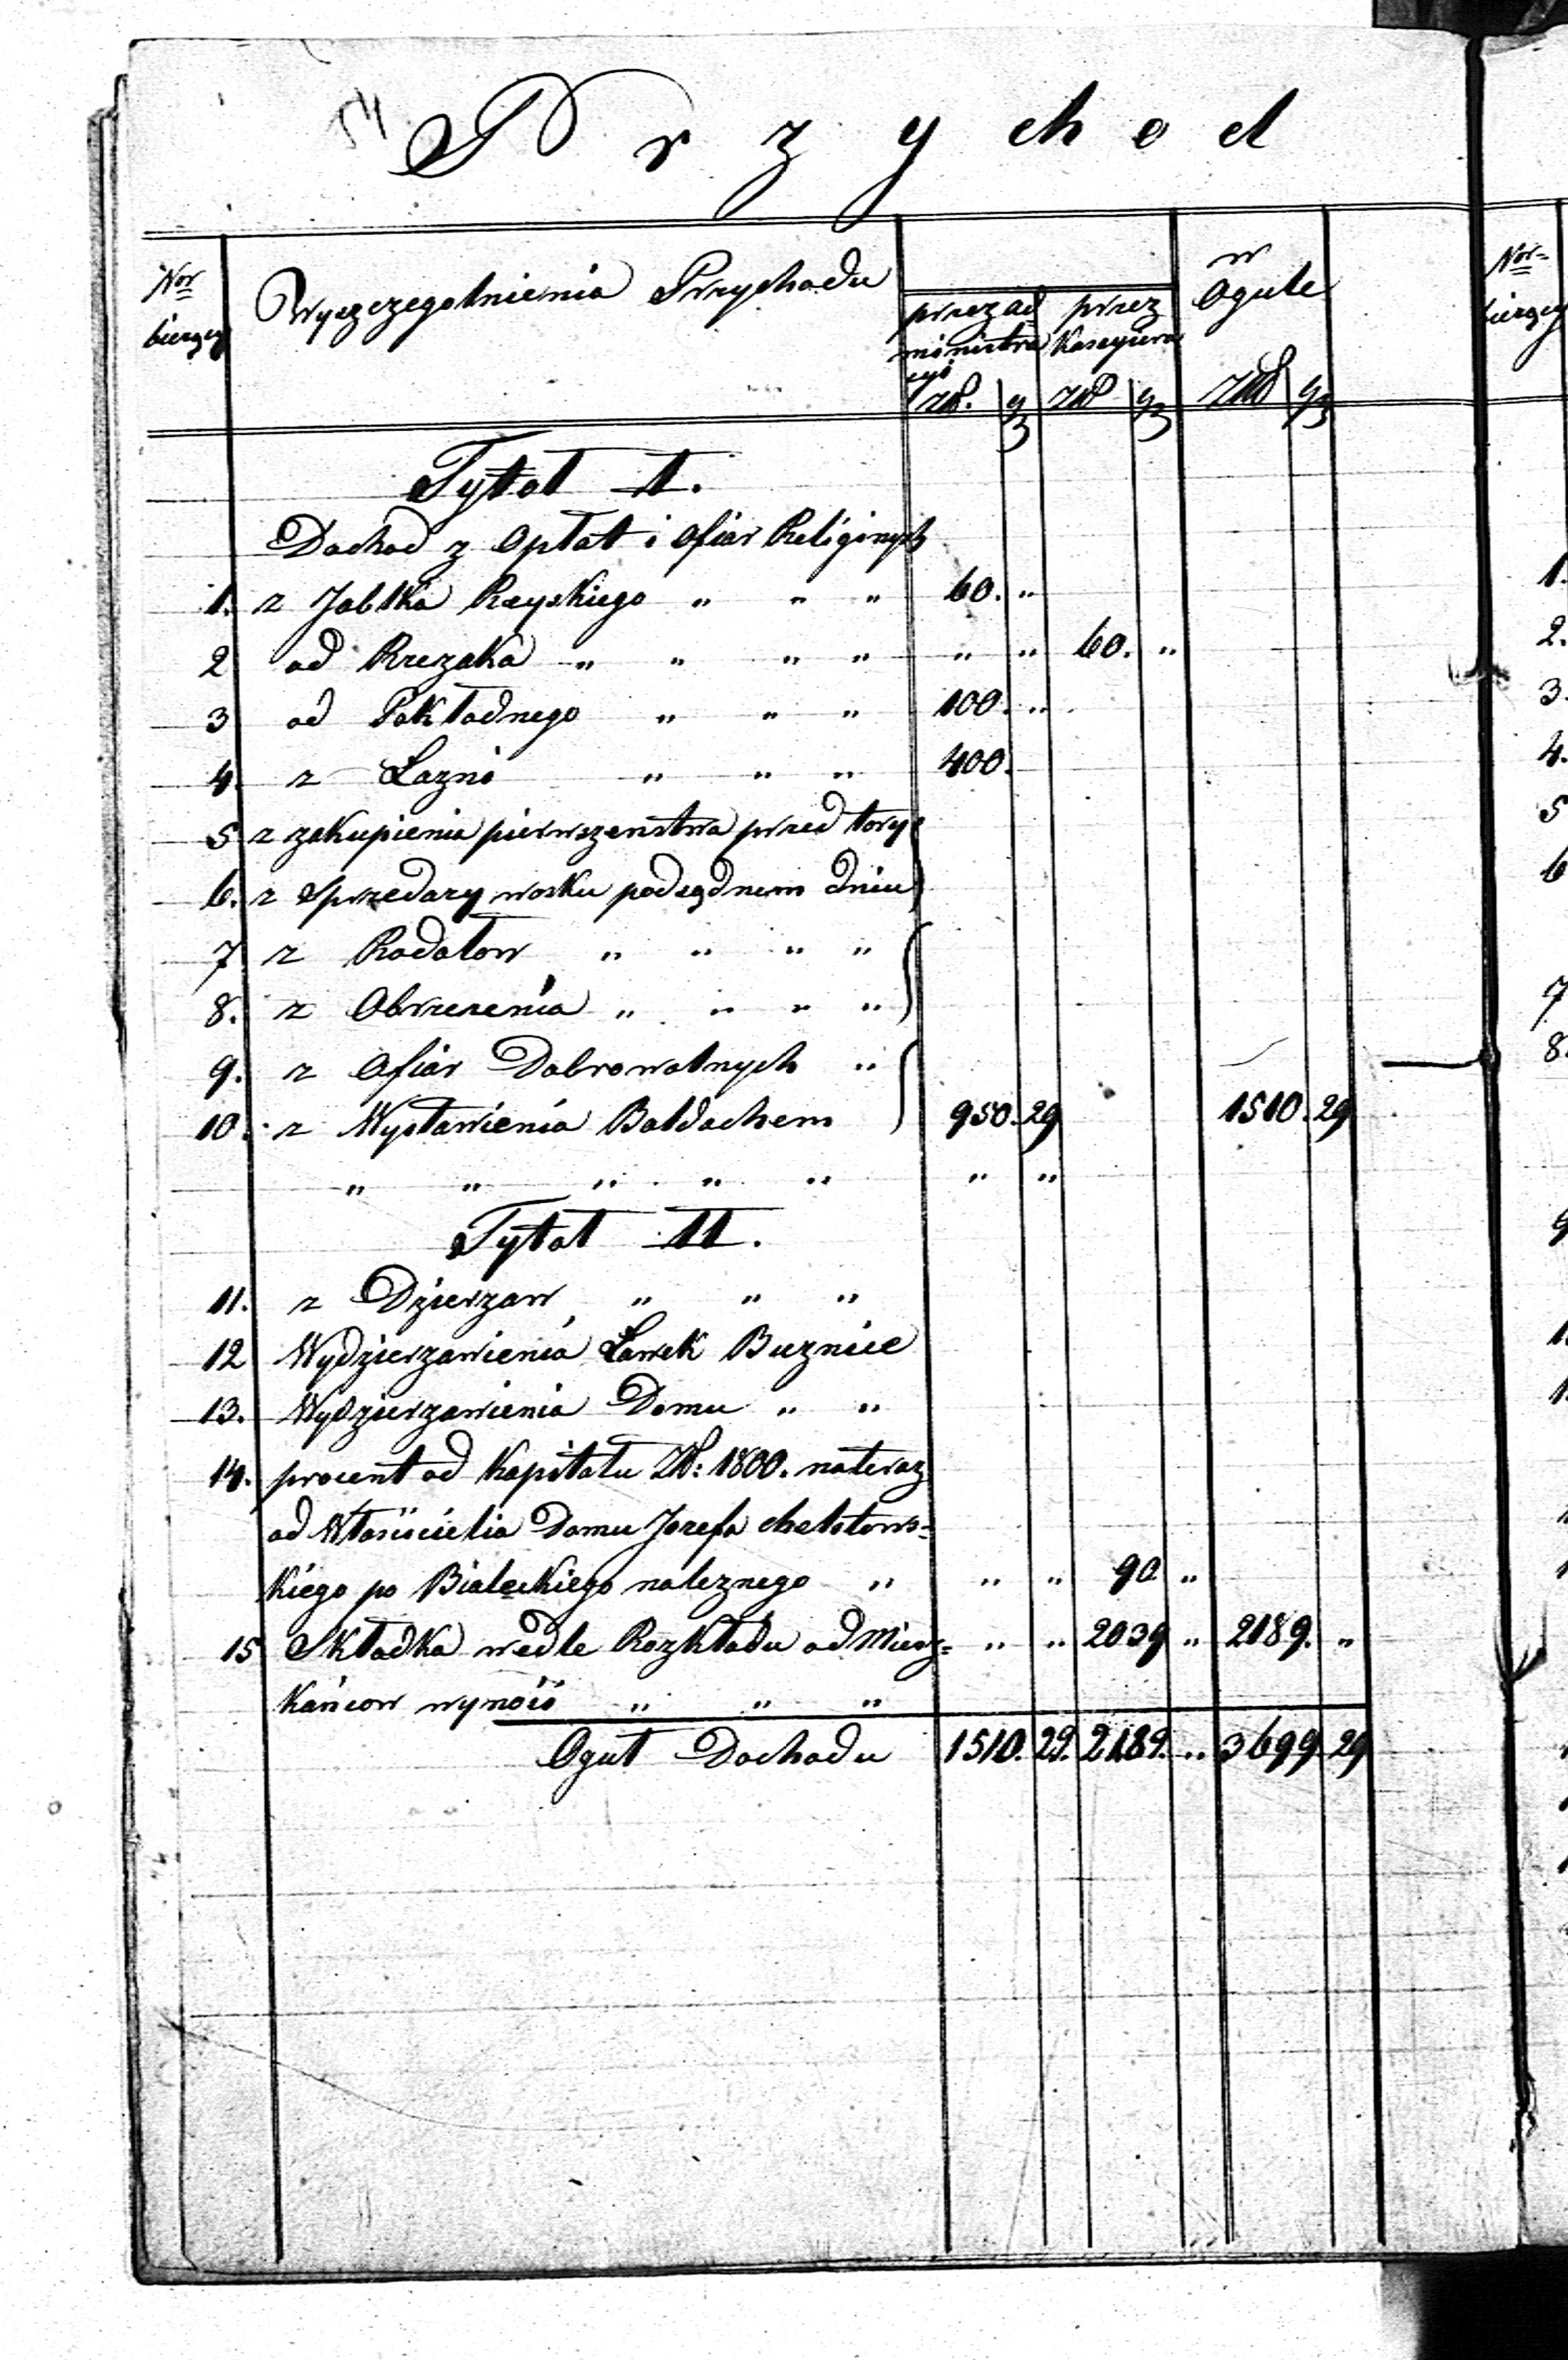 Przychod
Nor bierzcy | Wyszczegolnienia Przychodu | przez administracyi Złł. gr | przez Kasyiera Złł gr | w Ogule Złł gr
Tytoł I.
Dochod z Opłat i Ofiar Religinych
1. z Jabłka Rayskiego " " " 60. "
2 od Rzezaka " " " " " " 60. "
3 od Pokładnego " " " 100. "
4. z Łazni " " " 400.
5 z zakupienia pierwszenstwa przed tory
6. z Sprzedarzy wosku podsądnem dniu
7 z Rodałow " " " "
8. z Obrzezenia " " " "
9. z Ofiar Dobrowolnych "
10. z Wystawienia Baldachem 950. 29 1510. 29
" " " " " " "
Tytoł II.
11. z Dzierzaw " " "
12 Wydzierzawienia Ławek Buznice
13. Wydzierzawienia Domu " "
14. procent od Kapitału Złł: 1800. nateraz
od Włascicielia Domu Jozefa chełstows=
kiego po Białeckiego naleznego " " " 90 "
15 Składka wedle Rozkładu od Miesz= " " 2039 " 2189. "
kańcow wynosi " " "
Oguł Dochodu 1510. 29. 2189. " 3699. 29
Nor= bierzcy
1.
2.
3.
4.
5
6
7
8.